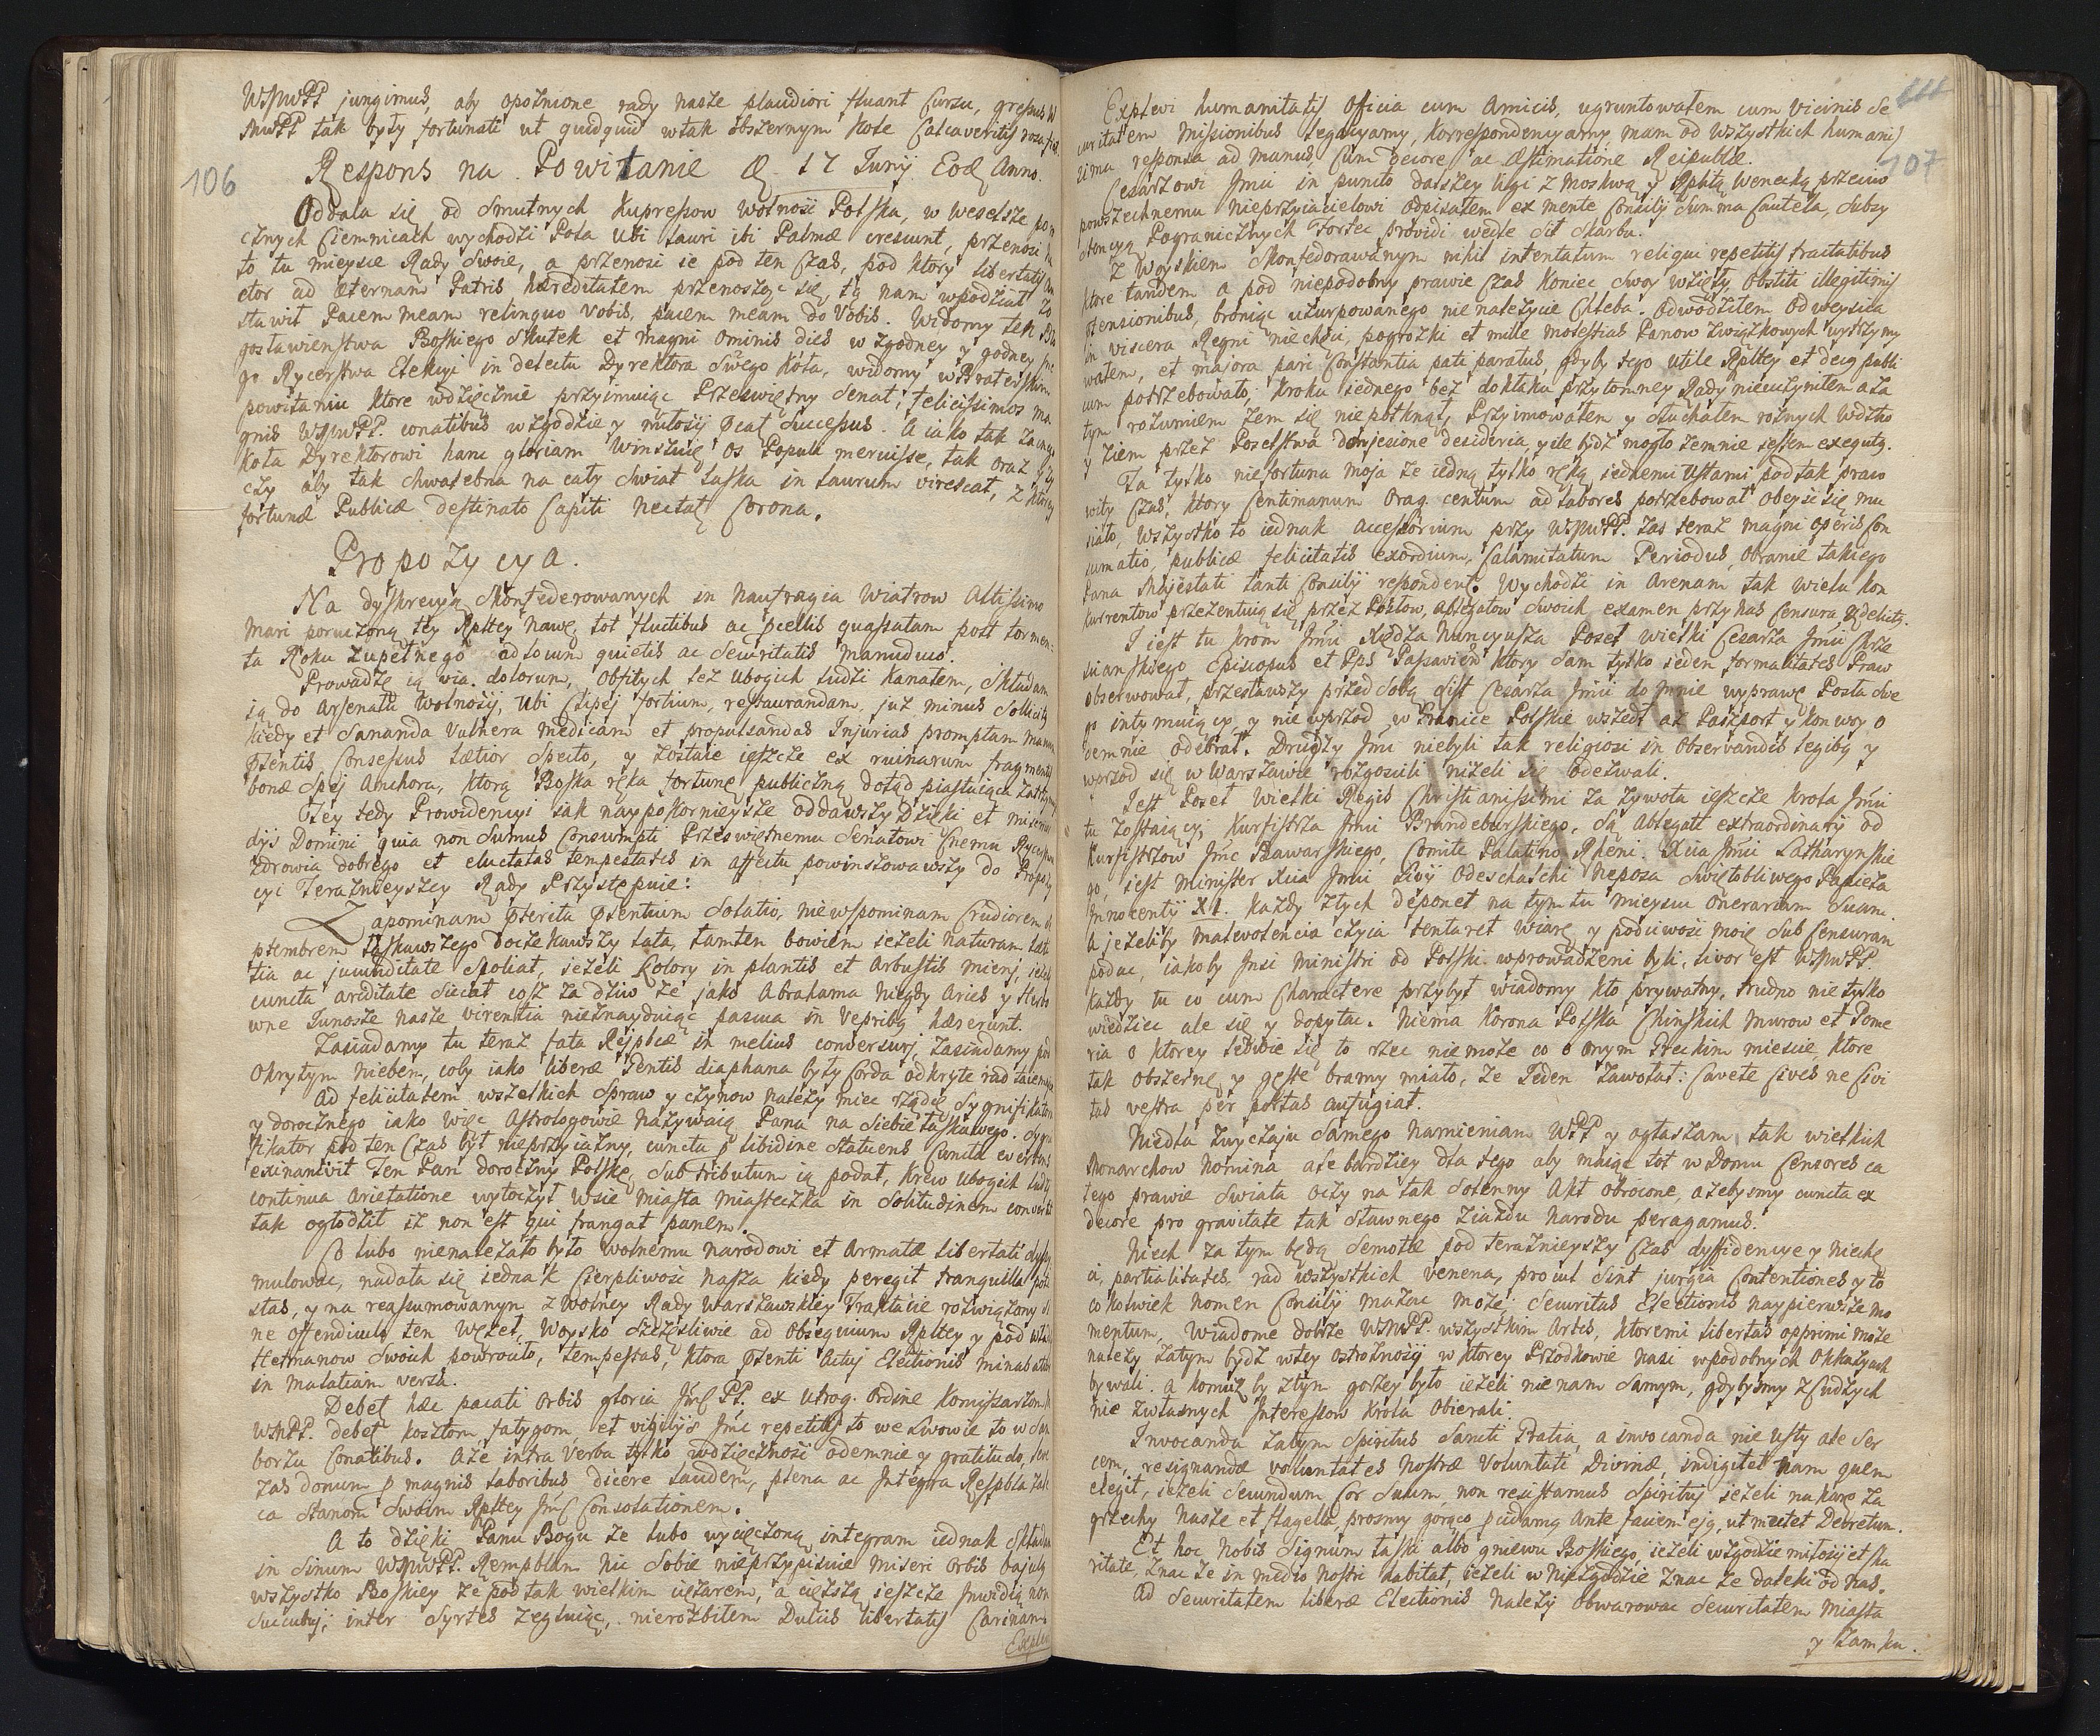 WMMPP jungimus, aby opoźnione rady nasze plaudiori fluant Cursu, gressus
MMPP tak były fortunati ut quidquid wtak obszernym Kole Calcaveritis rosa
106
Respons na Powitanie D. 17 Junij Eod Anno.
Oddala się od smutnych Kupressow wolność Polska, w weselsze
cznych Ciemnicach wychodzi Pola Ubi Lauri ibi Palmæ crescunt, przenosi
to tu mieysce Rady Swoie, a przenosi ie pod ten Czas, pod ktory libertatis
ctor ad æternam Patris hæreditatem przenosząc się, tą nam wpodział
stawił Pacem meam relinquo vobis, pacem meam do Vobis. Widomy ten
gosławienstwa Boskiego Skutek et magni ominis dies w zgodney y godney
go Rycerstwa Elekcyi in delectu Dyrektora Swego Koła, widomy w Braterskim
powitaniu ktore wdzięcznie przyimuiąc Prześwietny Senat, felicissimos ma
gnis WMMPP. conatibus w zgodzie y miłości Precat Successus. A iako tak zacnego
Koła Dyrektorowi hanc gloriam Winszuię os Populi meruisse, tak oraz
czy aby tak chwalebna na cały świat Laska in Laurum virescat, z ktorey
fortunæ Publicæ destinato Capiti nectat Corona.
Propozycya.
Na dyskrecyą Skonfederowanych in naufragia Wiatrow Altissimo
Mari poruczoną tey Rpltey Nawę, tot fluctibus ac procellis quassatam post tormen-
ta Roku zupełnego ad locum quietis ac Securitatis manuduco.
Prowadzę ią via dolorum, Obfitych łez Ubogich ludzi Kanałem, Składam
ią do Arsenału Wolności, Ubi Stipes fortium, restaurandam, już minus Sollicitę
kiedy et Sananda Vulnera medicam et propulsandas Injurias promptam manum
Præsentis Consessus lætior Specto, y zostaie ieszcze ex ruinarum fragmentis
bonæ Spei Anchora, ktorą Boska ręka fortunę publiczną dotąd piastuiąca
Tey tedy Prowidencyi iak naypokornieysze oddawszy Dzięki et
dijs Domini quia non Sumus Consumpti Prześwietnemu Senatowi Cnemu
zdrowia dobrego et eluctatas tempestates in affectu powinszowawszy do Propozy
cyi Teraznieyszey Rady Przystępuie:
Zapominam Præterita Præsentium Solatio, niewspominam Crudiorem
ptembrem łaskawszego doczekawszy lata, tamten bowiem ieżeli naturam læti
tia ac jucunditate Spoliat, ieżeli Kolory in plantis et Arbustis mieni,
cuncta ariditate Siccat coż za dziw że jako Abrahama niegdy Aries y
wne Junosze nasze virentia nieznayduiąc pascua in Vepribus hæserunt.
Zasiadamy tu teraz fata Rejpbcæ in melius conversuri, zasiadamy pod
Okrytym Niebem, coby iako liberæ Gentis diaphana były Corda odkryte rad
Ad felicitatem wszelkich Spraw y czynow należy miec rządcę Sygnifikatora
y dorocznego iako więc Astrologowie nazywaią Pana na siebie łaskawego.
fikator pod ten Czas był nieprzyiazny, cuncta p libidine Statuens Cuncta
exinanivit Ten Pan doroczny Polskę, Sub tributum ią podał, Krew Ubogich ludzi
continua Arietatione wytoczył wsie miasta miasteczka in Solitudinem
tak ogłodził iż non est qui frangat panem.
Co lubo nienależało było wolnemu narodowi et Armatæ libertati
mulować, nadała się iednak Cierpliwość nasza kiedy peregit tranquilla
stas, y na reassumowanym z wolney Rady Warszawskiey Traktacie rozwiązony
ne offendiculo ten Węzeł, Woysko szczęśliwie ad obsequium Rpltey y pod
Hetmanow Swoich powrociło, tempestas, ktora Præsenti Actui Electionis minabatur
in Malatiam versa.
Debet hæc pacati Orbis gloria Jmc PP. ex utroq. Ordine Komissarzom
WMPP. debet kosztom, fatygom, et vigilijs Jmc repetitis to we Lwowie to w Sam
borzu Conatibus. Ale intra Verba tylko wdzięczność odemnie y gratitudo,
zas donum p magnis laboribus dicere laudem, plena ac Integra Respbla
ca Stanom Swoim Rpltey Jmc Consolationem.
A to dzięki Panu Bogu że lubo wycięczoną integram iednak
in Sinum WMMPP. Rempblam nic Sobie nieprzypisuie miseri Orbis bajuly
wszystko Boskiey że pod tak wielkim ciężarem, a cięższą ieszcze Inwidią non
Succubuj, inter Syrtes żegluiąc, nierozbiłem Dulcis libertatis Carinam.
Explevi
107
Explevi humanitatis Officia cum Amicis, ugruntowałem cum Vicinis Se
curitatem Missionibus Legacyami, Korrespondencyami mam od wszystkich humanis
sima responsa ad manus, Cum decore ac Æstimatione Reipublæ.
Cesarzowi Jmci in puncto dalszey ligi z Moskwą y Rpltą Wenecką przeciwko
powszechnemu nieprzyiacielowi odpisałem ex mente Consilij Summa Cautela, Subsy
stencyą Pogranicznych Fortec providi wedle Sił Skarbu.
Z Woyskiem Skonfederowanym nihil intentatum reliqui repetitis tractatibus
ktore tandem a pod niepodobny prawie Czas koniec Swoy wzięły, Obstiti illegitimis
ptensionibus, broniąc uzurpowanego nienależycie Chleba. Odwodziłem od weyscia
in viscera Regni niechęci, pogrożki et mille molestias Panow Związkowych wytrzymy
wałem, et majora pari Constantia pati paratus, gdyby tego utile Rpltey et decus publi
cum potrzebowało, kroku iednego bez dokładu przytomney Rady nieuczyniłem a za
tym rozumiem żem się niepotknął, Przyimowałem y Słuchałem rożnych Wdztw
y Ziem przez Poselstwa doniesione desideria y ile bydź mogło zemnie iestem exequutus.
Ta tylko niefortuna moja że iedną tylko ręką iednemi Ustami pod tak praco
wity Czas, ktory Centimanum Oraq. centum ad labores potrzebował obeyść się mu
siało, Wszystko to iednak accessorium przy WMMPP. Zas teraz magni operis Con
sumatio, publicæ felicitatis exordium, Calamitatum Periodus, obranie takiego
Pana Majestati tanti Consilij respondent. Wychodzi in Arenam tak wielu kon
kurrentow prezentuią się przez Posłow, ablegatow Swoich examen przy nas Censura et delectus.
I iest tu krom Jmci Xiędza Nuncyusza Poseł wielki Cesarza Jmci Chrze
scianskiego Episcopus et Pps Passavien ktory Sam tylko ieden formalitates Praw
observował, przesławszy przed Sobą List Cesarza Jmci do mnie wyprawę Posła Swe
go intymuiący, y nie wprzod w Granice Polskie wszedł az Paszport y konwoy o
demnie odebrał. Drudzy Jmci niebyli tak religiosi in Observandis legibus y
wprzod się w Warszawie rozgościli niżeli się odezwali.
Jest Poseł Wielki Regis Christianissimi za żywota ieszcze Krola Jmci
tu zostaiący, Kurfistrza Jmci Brandeburskiego. Są Ablegati extraordinarij od
Kurfistrzow Jmc Bawarskiego, Comite Palatino Rheni. Xcia Jmci Lotharynskie
go, iest Minister Xcia Jmci Livij Odeschalchi Neposa Swiętobliwego Papieża
Innocentij XI. Każdy z tych deponet na tym tu mieyscu Onerariam Suam.
A jeżeliby malevolencia czyia tentaret wiarę y podciwość moię Sub Censuram
podać, iakoby Insi Ministri od Polski wprowadzeni byli, livor est WMMPP.
każdy tu co cum Charactere przybył wiadomy kto prywatny, trudno nie tylko
wiedzieć ale się y dopytać. Niema Korona Polska Chinskich Murow et Pome
ria o ktorey ledwie się to rzec niemoże co o onym Greckim miescie, ktore
tak obszerne y gęste bramy miało, że Jeden zawołał: Cavete Cives ne Civi
tas vestra per portas aufugiat.
Niedla zwyczaju Samego namieniam WPP y ogłaszam tak wielkich
Monarchow Nomina ale bardziey dla tego aby maiąc tot w Domu Censores ca
łego prawie Swiata oczy na tak Solenny Akt obrocone, ażebysmy cuncta ex
decore pro gravitate tak Sławnego Ziazdu Narodu peragamus.
Niech za tym będą Semotæ pod teraznieyszy Czas dyffidencye y niechę
ci, partialitates rad wszystkich venena, procul Sint jurgia Contentiones y to
cokolwiek nomen Consilij mazac może, Securitas Electionis naypierwsze mo
mentum, Wiadome dobrze WMMPP. wszystkim Artes, ktoremi libertas opprimi może
należy zatym bydź wtey ostrożności w ktorey Przodkowie nasi wpodobnych Okkazyach
bywali. a komuż by z tym gorzey było ieżeli nie nam Samym, gdybysmy z Cudzych
nie zwłasnych Interessow Krola Obierali.
Invocanda zatym Spiritus Sancti Gratia, a invocanda nie Usty ale Ser
cem, resignandæ voluntates nostræ Voluntati Divinæ, indigitet nam quem
elegit, ieżeli Secundum Cor Suum, non resistamus Spiritui ieżeli na karę za
grzechy nasze et flagella, prosmy gorąco ante faciem ejus, ut mutet Decretum.
Et hoc nobis Signum łaski albo gniewu Boskiego, ieżeli w zgodzie miłości et cha
ritate, znać że in medio nostri habitat, ieżeli w niezgodzie znać że daleki od nas.
Ad Securitatem liberæ Electionis należy Obwarować Securitatem Miasta
y Zamku.